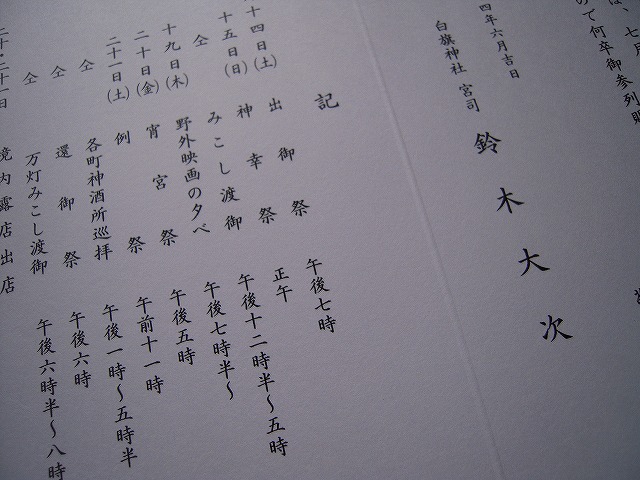 は、七月
て何卒御参列賜
四年六月吉日
白旗神社 宮司 鈴木大次
記
十四日(土) 出御祭 午後七時
十五日(日) 神幸祭 正午
仝 みこし渡御 午後十二時半〜五時
十九日(木) 野外映画の夕べ 午後七時半〜
二十日(金) 宵宮祭 午後五時
二十一日(土) 例祭 午前十一時
仝 各町神酒所巡拝 午後一時〜五時半
仝 還御祭 午後六時
仝 万灯みこし渡御 午後六時半〜八時
二十・二十一日 境内露店出店